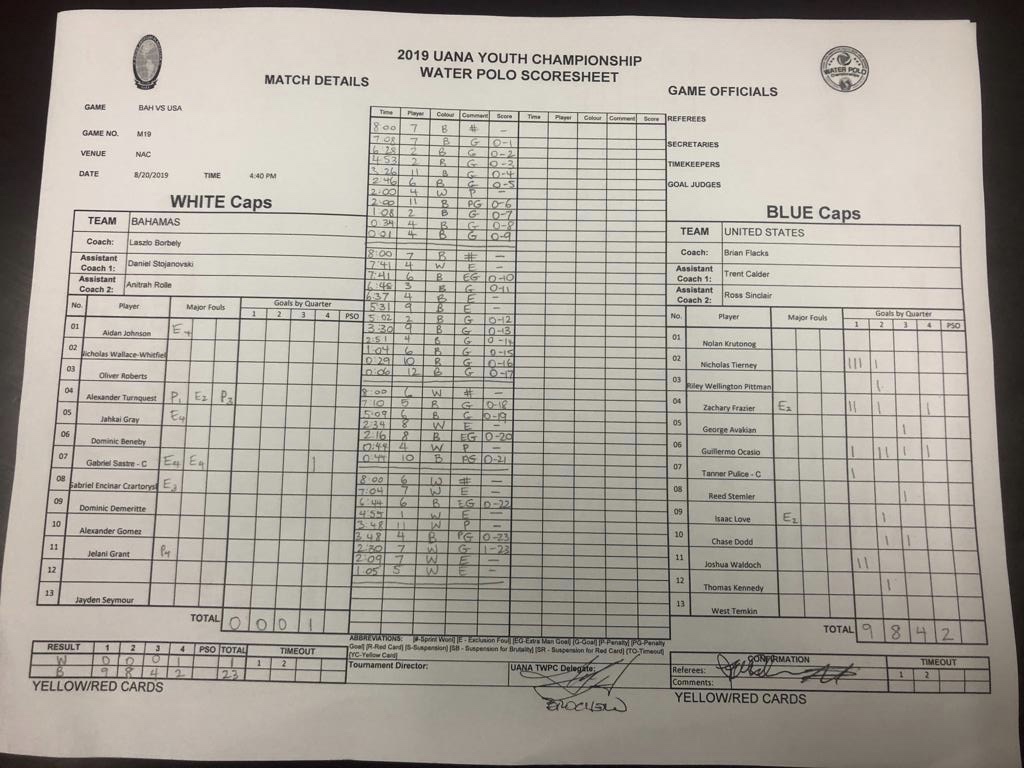 2019 UANA YOUTH CHAMPIONSHIP
WATER POLO SCORESHEET
WATER POLO
MATCH DETAILS
GAME BAH VS USA
GAME NO. M19
VENUE NAC
DATE 8/20/2019 TIME 4:40 PM
WHITE Caps
TEAM BAHAMAS
Coach: Laszlo Borbely
Assistant Coach 1: Daniel Stojanovski
Assistant Coach 2: Anitrah Rolle
No. Player Major Fouls Goals by Quarter
1 2 3 4 PSO
01 Aidan Johnson E4
02 Nicholas Wallace-Whitfiel
03 Oliver Roberts
04 Alexander Turnquest P1 E2 P3
05 Jahkai Gray E4
06 Dominic Beneby
07 Gabriel Sastre - C E4 E4 |
08 Gabriel Encinar Czartoryst E3
09 Dominic Demeritte
10 Alexander Gomez
11 Jelani Grant P4
12
13 Jayden Seymour
TOTAL 0 0 0 1
Time Player Colour Comment Score Time Player Colour Comment Score
8:00 7 B # -
7:08 7 B G 0-1
6:28 2 B G 0-2
4:53 2 B G 0-3
3:26 11 B G 0-4
2:46 6 B G 0-5
2:00 4 W P -
2:00 11 B PG 0-6
1:08 2 B G 0-7
0:34 4 B G 0-8
0:01 4 B G 0-9
8:00 7 B # -
7:41 4 W E -
7:41 6 B EG 0-10
6:48 3 B G 0-11
6:37 4 B E -
5:31 9 B E -
5:02 2 B G 0-12
3:30 9 B G 0-13
2:51 4 B G 0-14
1:04 6 B G 0-15
0:29 10 B G 0-16
0:06 12 B G 0-17
8:00 6 W # -
7:10 5 B G 0-18
5:09 6 B G 0-19
2:34 8 W E -
2:16 8 B EG 0-20
0:44 4 W P -
0:44 10 B PG 0-21
8:00 6 W # -
7:04 7 W E -
6:44 6 B EG 0-22
4:55 1 W E -
3:48 11 W P -
3:48 4 B PG 0-23
2:30 7 W G 1-23
2:09 7 W E -
1:05 5 W E -
GAME OFFICIALS
REFEREES
SECRETARIES
TIMEKEEPERS
GOAL JUDGES
BLUE Caps
TEAM UNITED STATES
Coach: Brian Flacks
Assistant Coach 1: Trent Calder
Assistant Coach 2: Ross Sinclair
No. Player Major Fouls Goals by Quarter
1 2 3 4 PSO
01 Nolan Krutonog
02 Nicholas Tierney ||| |
03 Riley Wellington Pittman |
04 Zachary Frazier E2 || | |
05 George Avakian |
06 Guillermo Ocasio | || | |
07 Tanner Pulice - C |
08 Reed Stemler |
09 Isaac Love E2 |
10 Chase Dodd | |
11 Joshua Waldoch ||
12 Thomas Kennedy |
13 West Temkin
TOTAL 9 8 4 2
RESULT 1 2 3 4 PSO TOTAL TIMEOUT
W 0 0 0 1 1 2
B 9 8 4 2 23
YELLOW/RED CARDS
ABBREVIATIONS: [#-Sprint Won] [E - Exclusion Foul] [EG-Extra Man Goal] [G-Goal] [P-Penalty] [PG-Penalty
Goal] [R-Red Card] [S-Suspension] [SB - Suspension for Brutality] [SR - Suspension for Red Card] [TO-Timeout]
[YC-Yellow Card]
Tournament Director: UANA TWPC Delegate:
CONFIRMATION TIMEOUT
Referees: 1 2
Comments:
YELLOW/RED CARDS